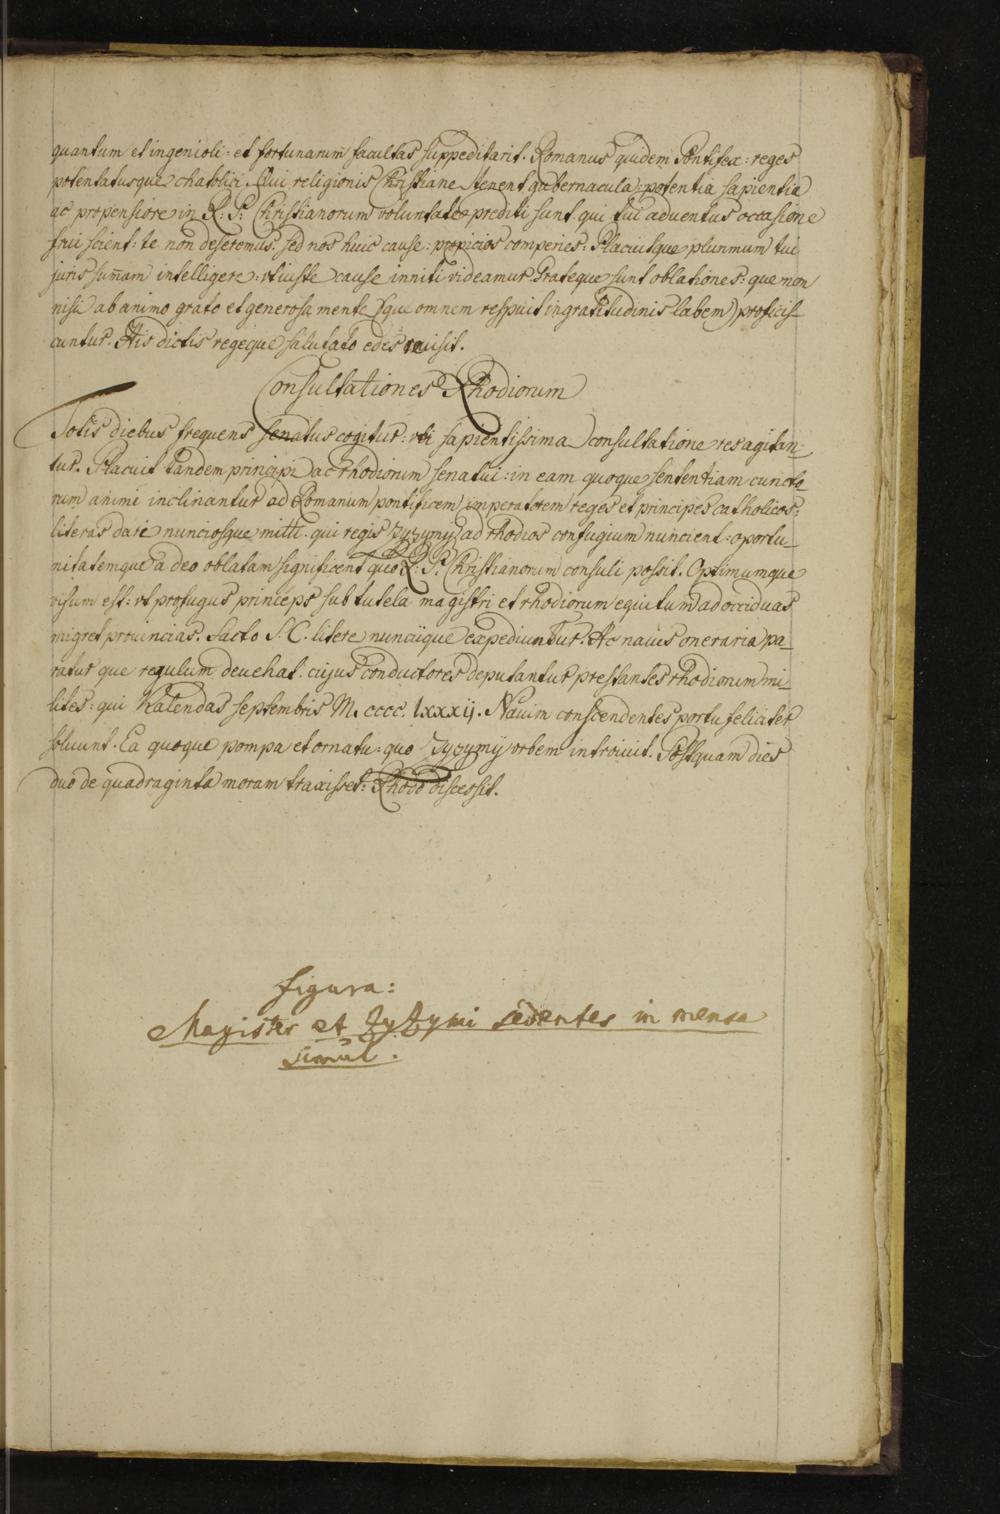 quantum et ingenioli: et fortunarum facultas suppeditarit. Romanus quidem Pontifex: reges
potentatusque chatolici. Qui religionis Christiane tenent gubernacula: potentia sapientia
ac propensiore in R: P: Christianorum voluntate prediti sunt. qui tui aduentus occasione
frui scient: te non deseremus. sed nos huic cause: propicios comperies. Placuitque plurimum tui
juris sum̄am intelligere: vt iuste cause inniti videamur. Grateque sunt oblationes: que non
nisi ab animo grato et generosa mente (que omnem respuit ingratitudinis labem) proficis-
cuntur. His dictis regeque salutato edes reuisit.
Consultationes Rhodiorum
Totis diebus frequens senatus cogitur: vti sapientissima consultatione res agitan-
tur. Placuit tandem principi ac rhodiorum senatui: in eam quoque sententiam cuncto-
rum animi inclinantur ad Romanum pontificem imperatorem reges et principes catholicos:
literas dari nunciosque mitti. qui regis zyzymy ad rhodios confugium nuncient: oportu-
nitatemque a deo oblatam significent quo R: P: Christianorum consuli possit. Optimumque
visum est: vt profugus princeps sub tutela magistri et rhodiorum equitum ad occiduas
migret prouincias. facto S. C. litere nunciique expediuntur. Ac nauis oneraria pa-
ratur que regulum deuehat. cujus conductores deputantur prestantes rhodiorum mi-
lites: qui Kalendas septembris M. cccc. lxxxij. Nauim conscendentes portu feliciter
soluunt. Ea quoque pompa et ornatu: quo Zyzymy vrbem introiuit. Postquam dies
duo de quadraginta moram traxisset: Rhodo discessit.
figura:
Magister et Zyzymi sedentes in mensa
simul.